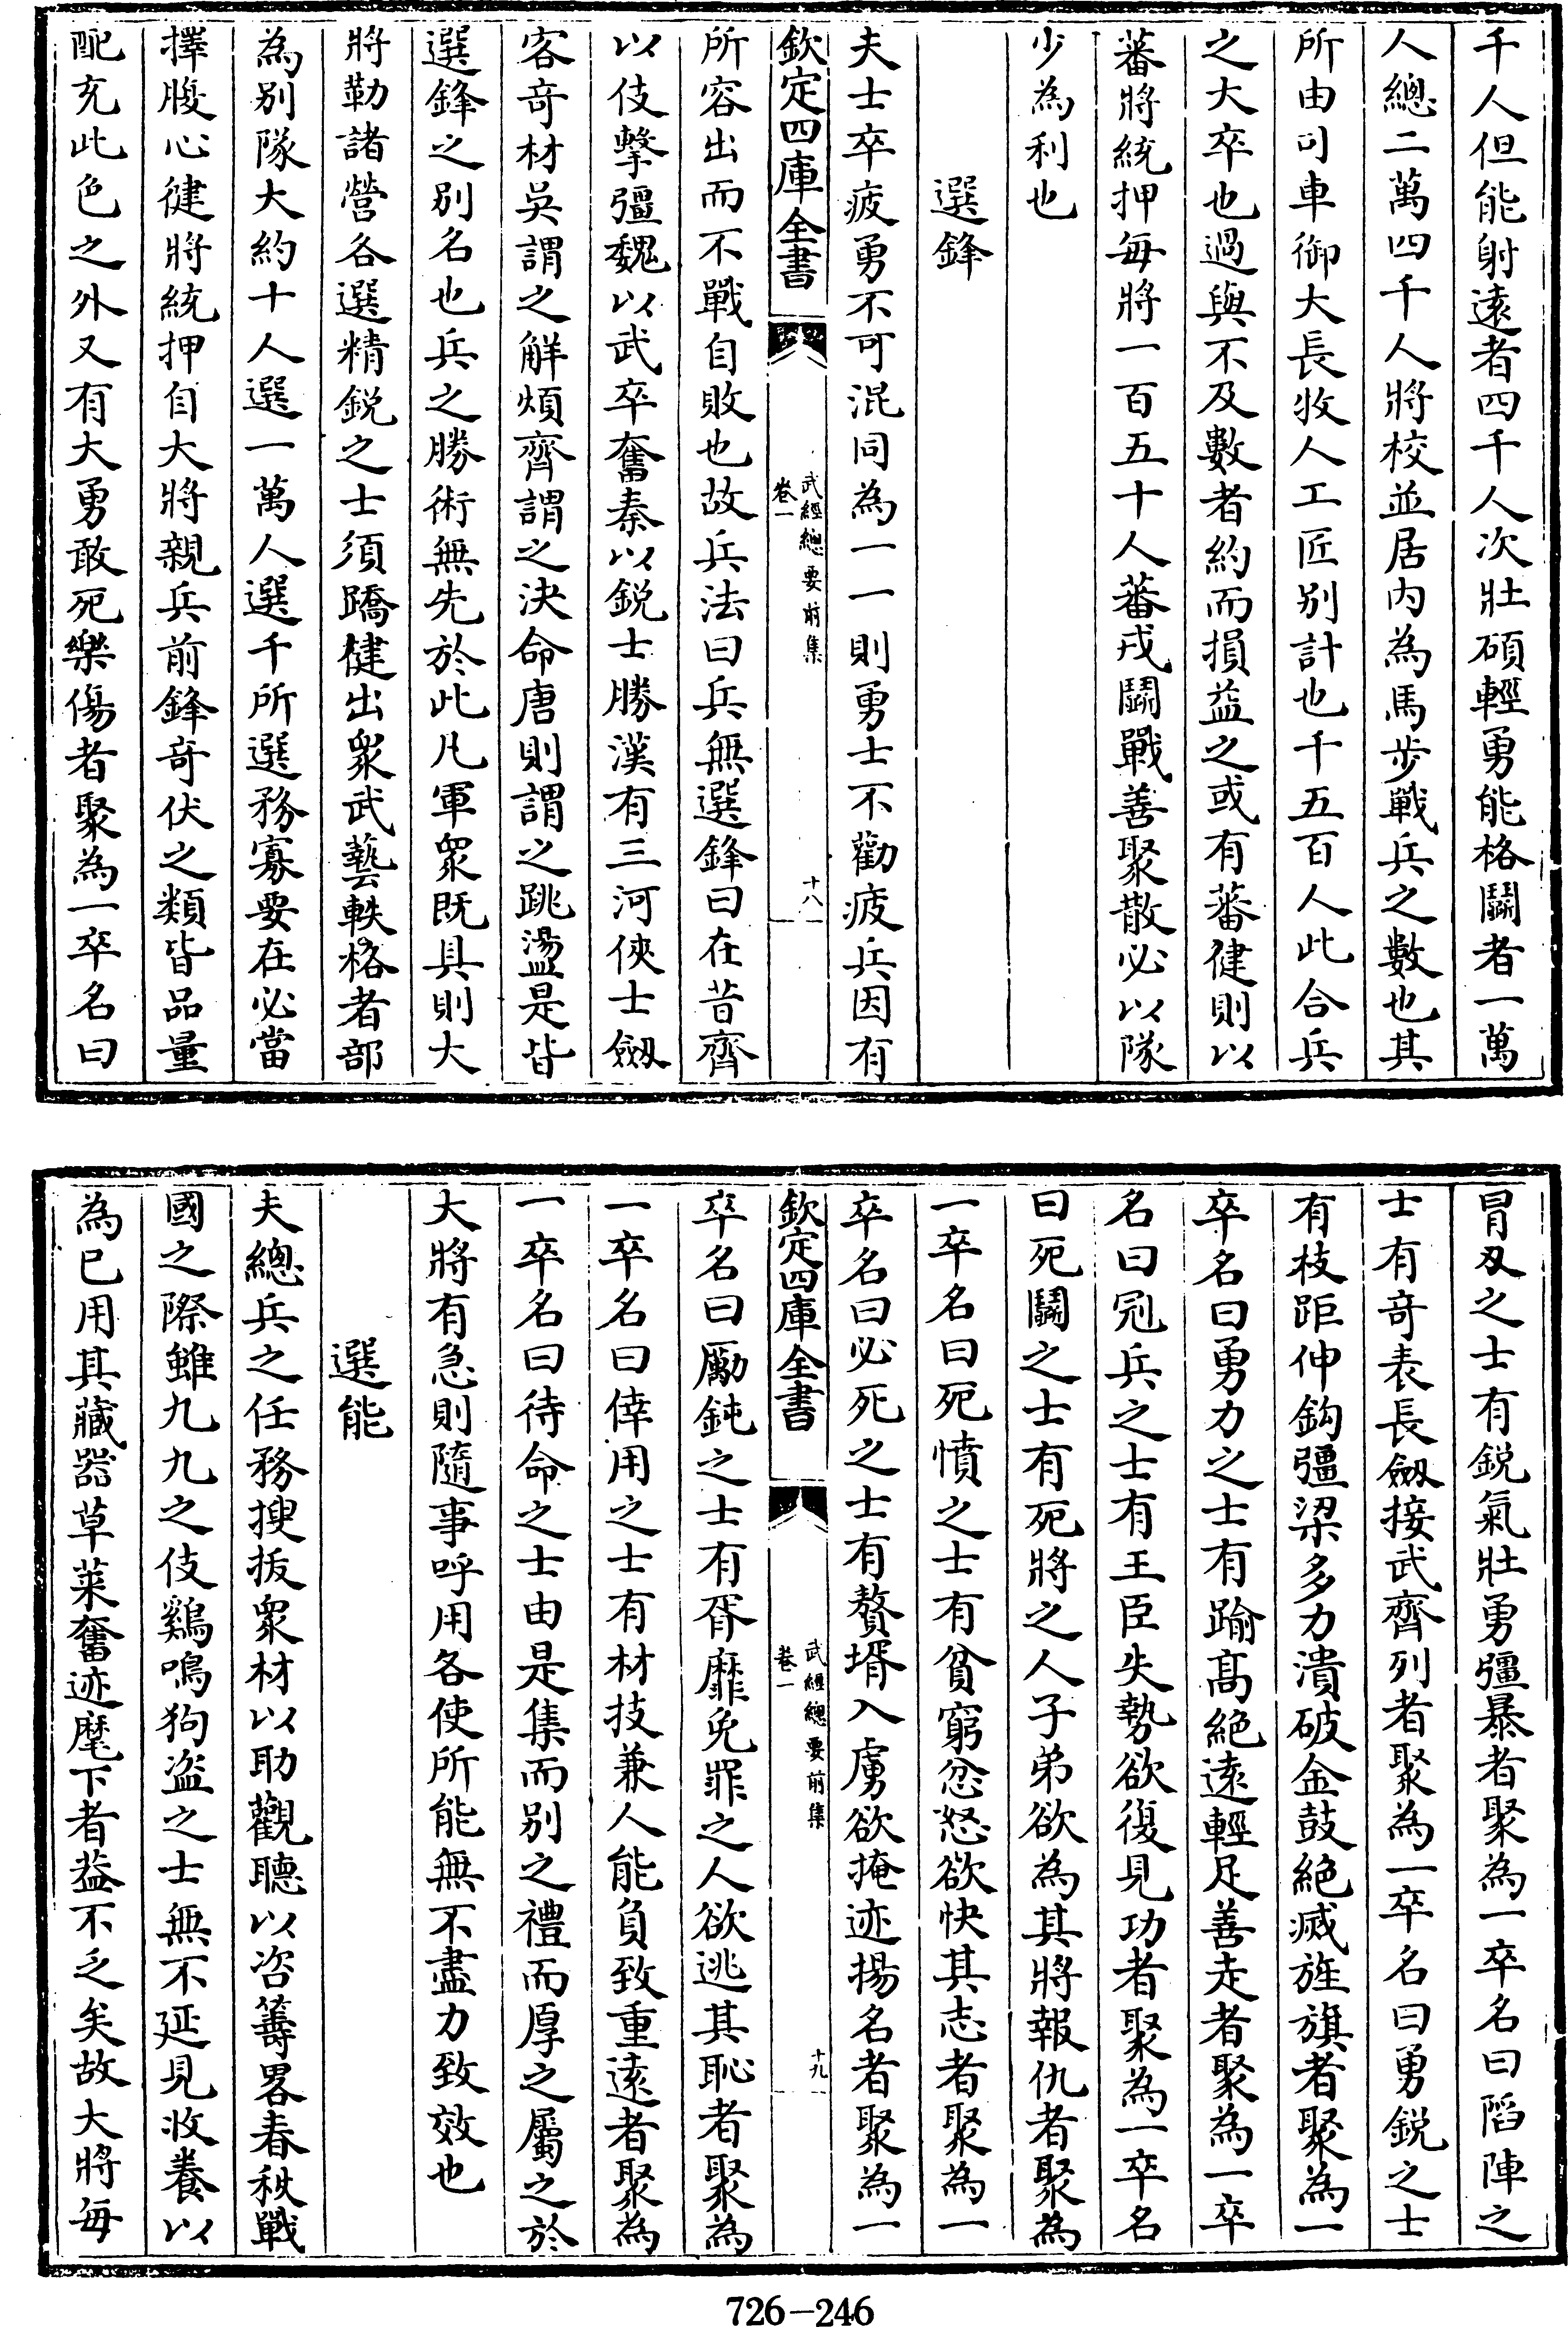 千人但能射遠者四千人次壯碩輕勇能格鬭者一萬
人總二萬四千人將校並居内為馬步戰兵之數也其
所由司車御大長牧人工匠别計也千五百人此合兵
之大卒也過與不及數者約而損益之或有蕃健則以
蕃將統押每將一百五十人蕃戎鬭戰善聚散必以隊
少為利也
選鋒
夫士卒疲勇不可混同為一一則勇士不勸疲兵因有
欽定四庫全書
武經總要前集
卷一
十八
所容出而不戰自敗也故兵法曰兵無選鋒曰在昔齊
以伎擊彊魏以武卒奮秦以鋭士勝漢有三河俠士劔
客竒材吳謂之解煩齊謂之決命唐則謂之跳盪是皆
選鋒之别名也兵之勝術無先於此凡軍衆既具則大
將勒諸營各選精鋭之士須蹻健出衆武藝軼格者部
為别隊大約十人選一萬人選千所選務寡要在必當
擇腹心健將統押自大將親兵前鋒竒伏之類皆品量
配充此色之外又有大勇敢死樂傷者聚為一卒名曰
冒刄之士有鋭氣壯勇彊暴者聚為一卒名曰䧟陣之
士有竒表長劔接武齊列者聚為一卒名曰勇鋭之士
有枝距伸鈎彊梁多力潰破金鼓絶滅旌旗者聚為一
卒名曰勇力之士有踰髙絶遠輕足善走者聚為一卒
名曰冠兵之士有王臣失勢欲復見功者聚為一卒名
曰死鬭之士有死將之人子弟欲為其將報仇者聚為
一卒名曰死憤之士有貧窮忿怒欲快其志者聚為一
卒名曰必死之士有贅壻入虜欲掩迹揚名者聚為一
欽定四庫全書
武經總要前集
卷一
十九
卒名曰勵鈍之士有胥靡免罪之人欲逃其恥者聚為
一卒名曰倖用之士有材技兼人能負致重遠者聚為
一卒名曰待命之士由是集而别之禮而厚之屬之於
大將有急則隨事呼用各使所能無不盡力致效也
選能
夫總兵之任務搜拔衆材以助觀聽以咨籌畧春秋戰
國之際雖九九之伎鷄鳴狗盜之士無不延見收養以
為已用其藏器草萊奮迹麾下者葢不乏矣故大將每
726-246